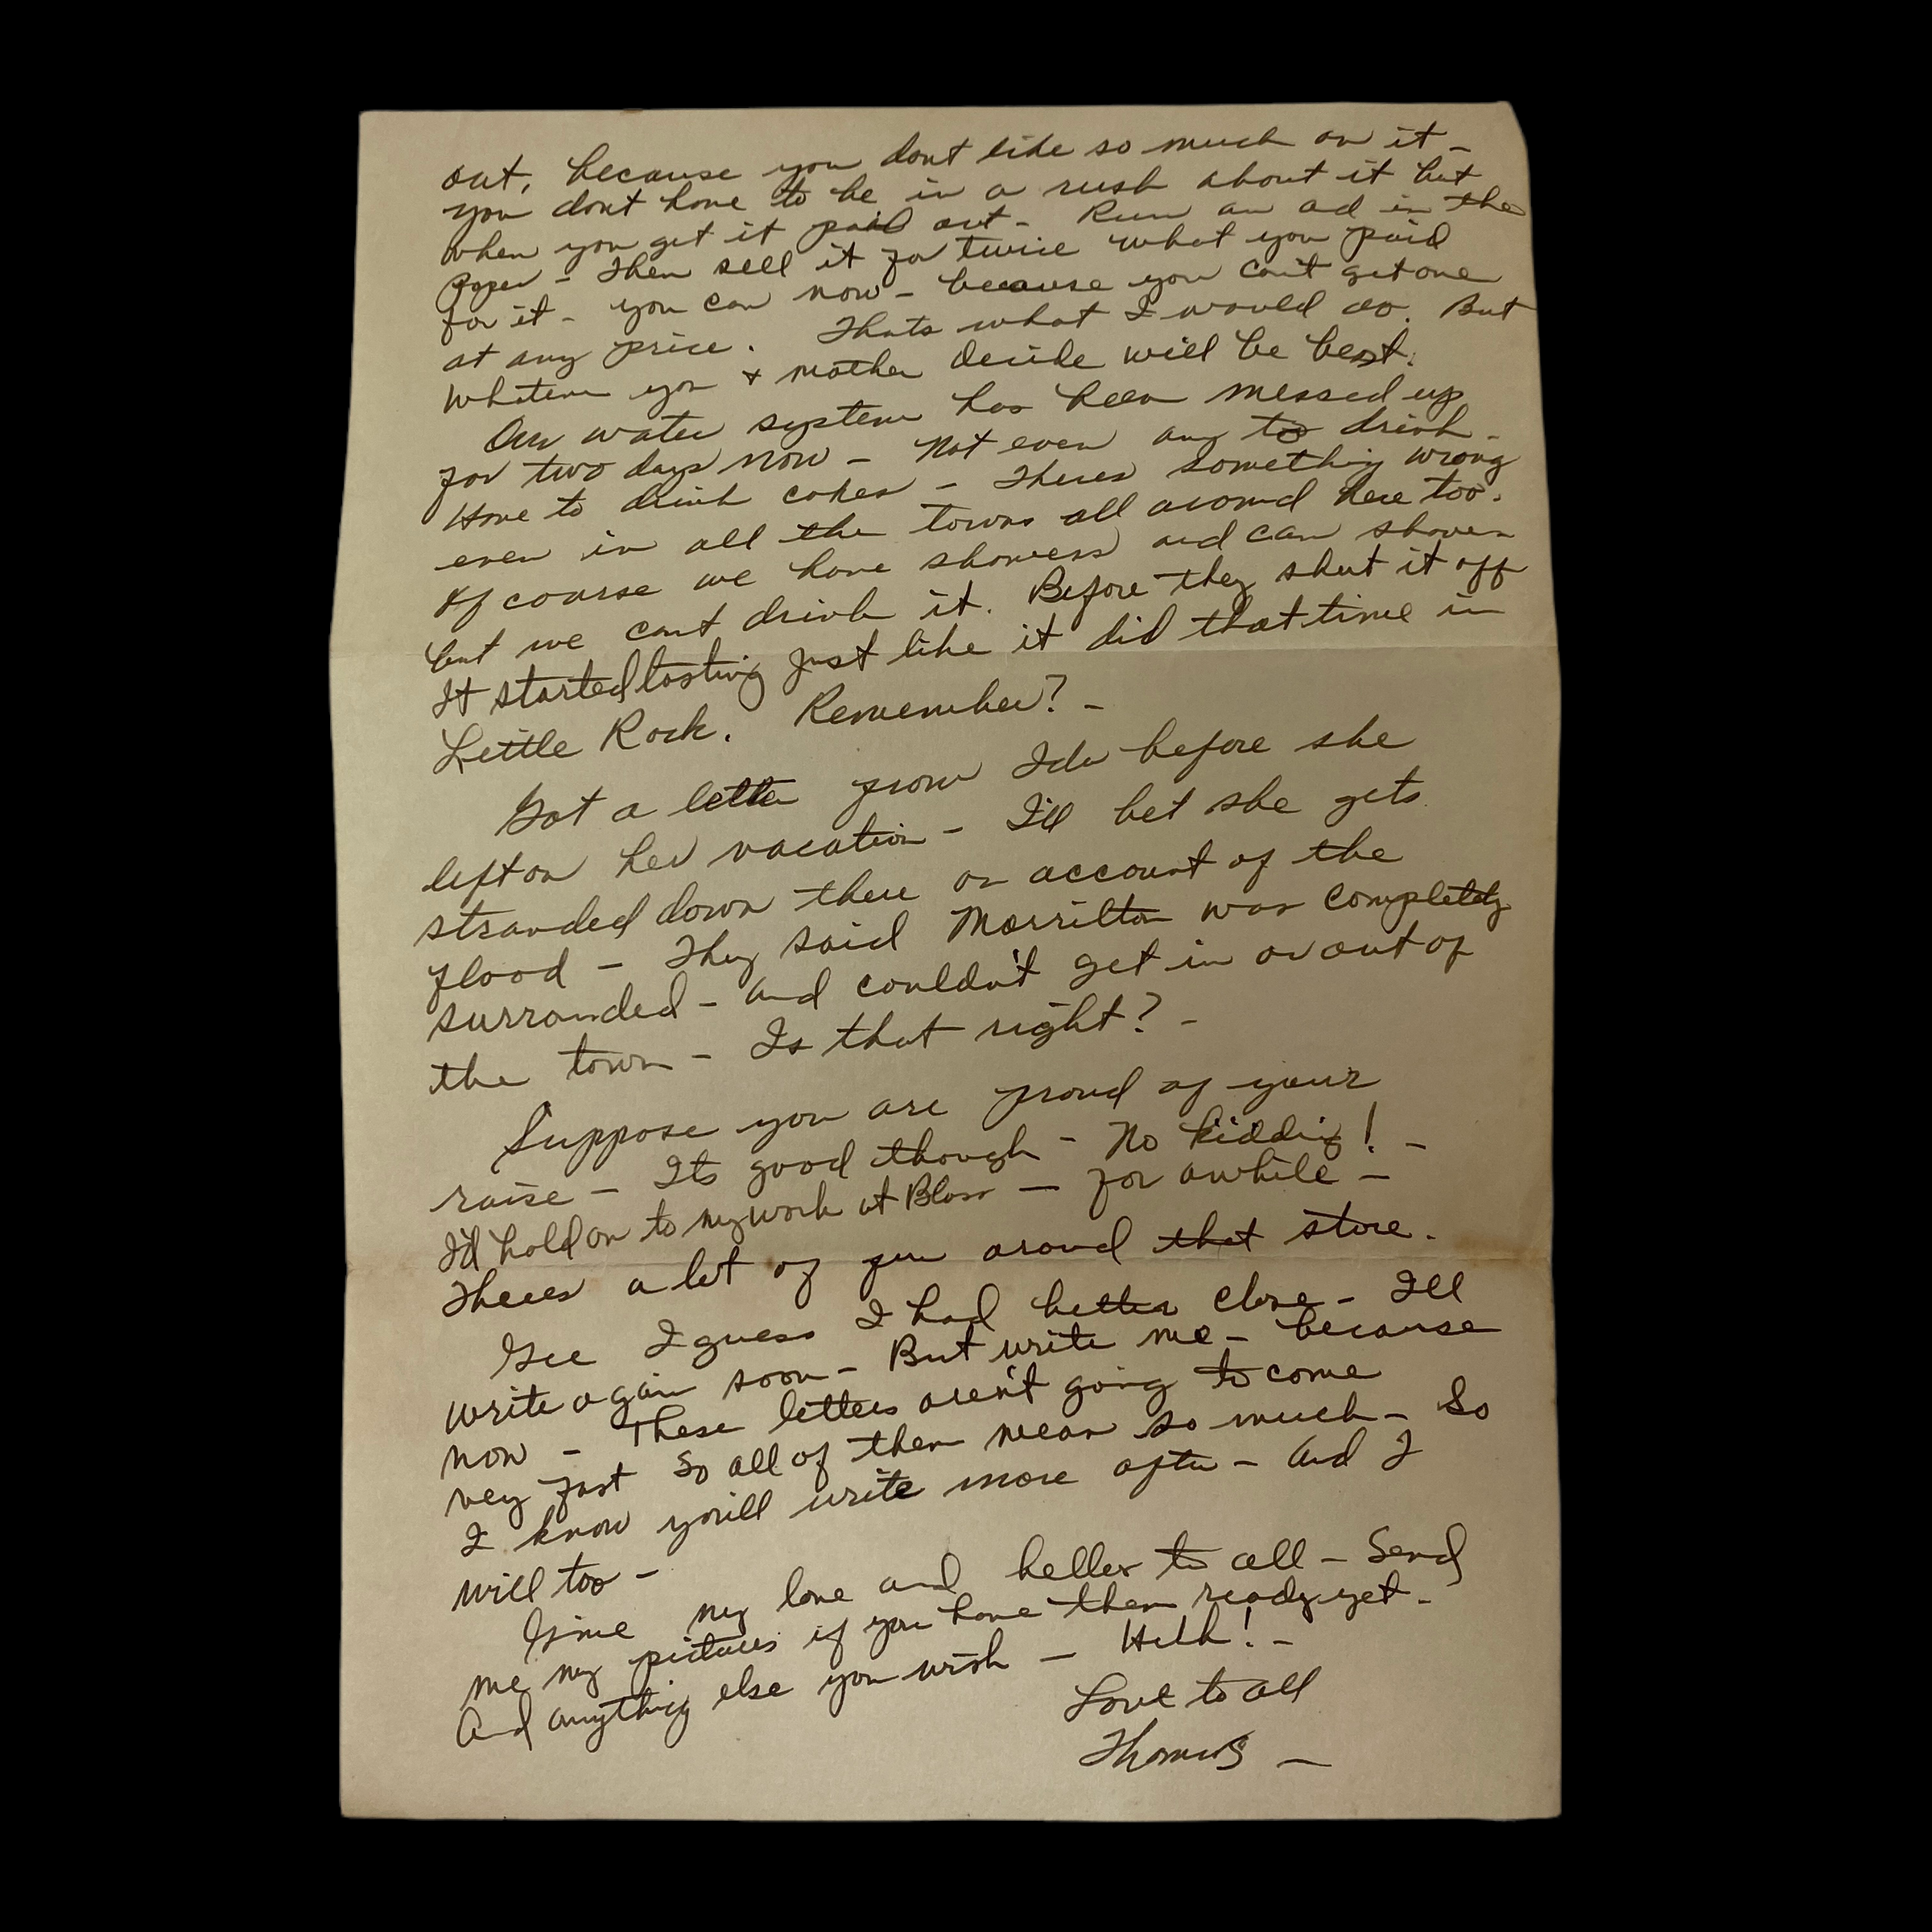 out, because you dont like so much on it -
you dont have to be in a rush about it but
when you get it paid out - Run an ad in the
Paper - Then sell it for twice what you paid
for it - you can now - because you can't get one
at any price. Thats what I would do. But
Whatever you + mother decide will be best.
Our water system has been messed up
for two days now - Not even any to drink -
Have to drink cokes - Theres something wrong
even in all the towns all around here too.
Of course we have showers and can shower
but we cant drink it. Before they shut it off
It started tasting just like it did that time in
Little Rock. Remember? -
Got a letter from Ida before she
left on her vacation - I'll bet she gets
stranded down there on account of the
flood - They said Morrilton was completely
surrounded - and couldn't get in or out of
the town - Is that right? -
Suppose you are proud of your
raise - Its good though - No kidding! -
I'd hold on to my work at Blass - for awhile -
Theres a lot of fun around that store.
Gee I guess I had better close - I'll
write again soon - But write me - because
now - These letters aren't going to come
very fast So all of them mean so much - So
I know you'll write more often - And I
will too -
Give my love and hellos to all - Send
me my pictures if you have them ready yet -
And anything else you wish - Huh! -
Love to all
Thomas -